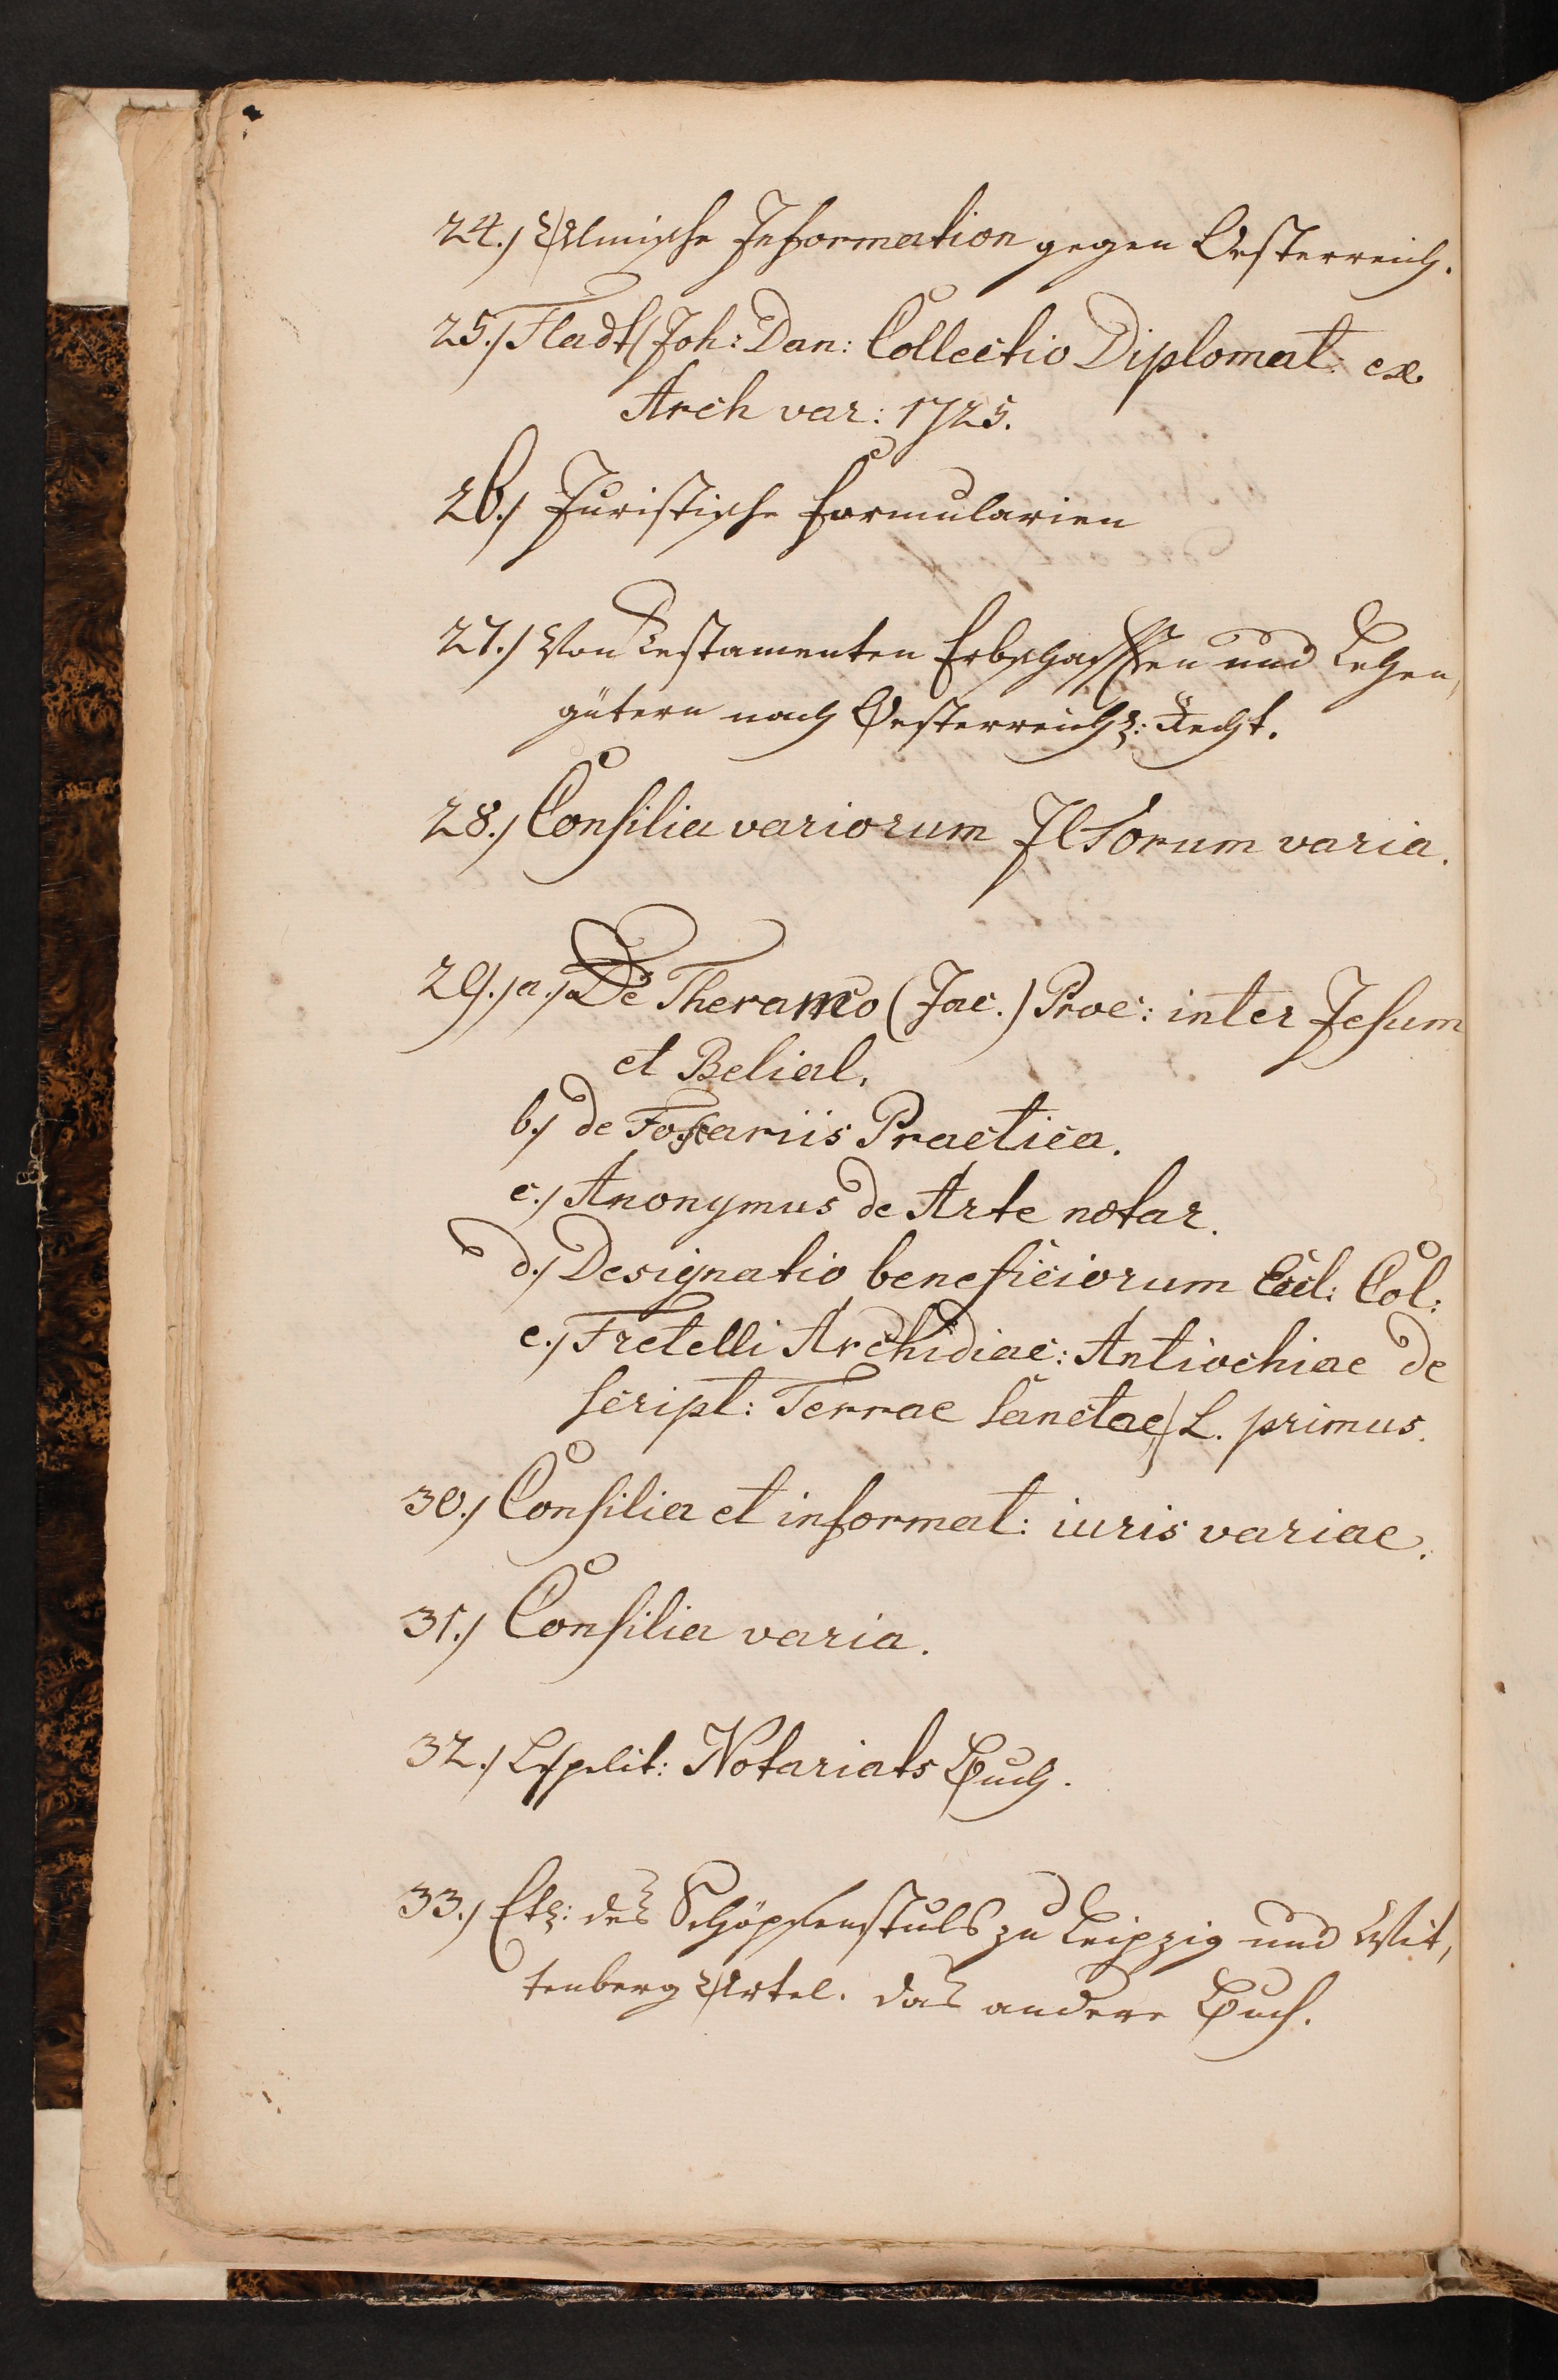 24.) Ulmische Information gegen Oesterreich.
25.) Fladt (Joh: Dan: Collectio Diplomat: ex
Arch var: 1725.
26.) Juristische Formularien
27.) Von Testamenten Erbschafften und Lehen,
gütern nach Oesterreichs: Recht.
28.) Consilia variorum JCtorum varia.
29.) a.) De Theramo (Jac.) Proc: inter Jesum
et Belial.
b.) de Fossariis Practica.
c.) Anonymus de Arte notar.
d.) Designatio beneficiorum Eccl: Col:
e.) Fretelli Archidiac: Antiochiae de
script: Terrae Sanctae) L. primus.
30.) Consilia et informat: iuris variae.
31.) Consilia varia.
32.) Notariats Buch.
33.) des Schöpfenstuls zu Leipzig und Wit,
tenberg Urtel. das andere Buch.